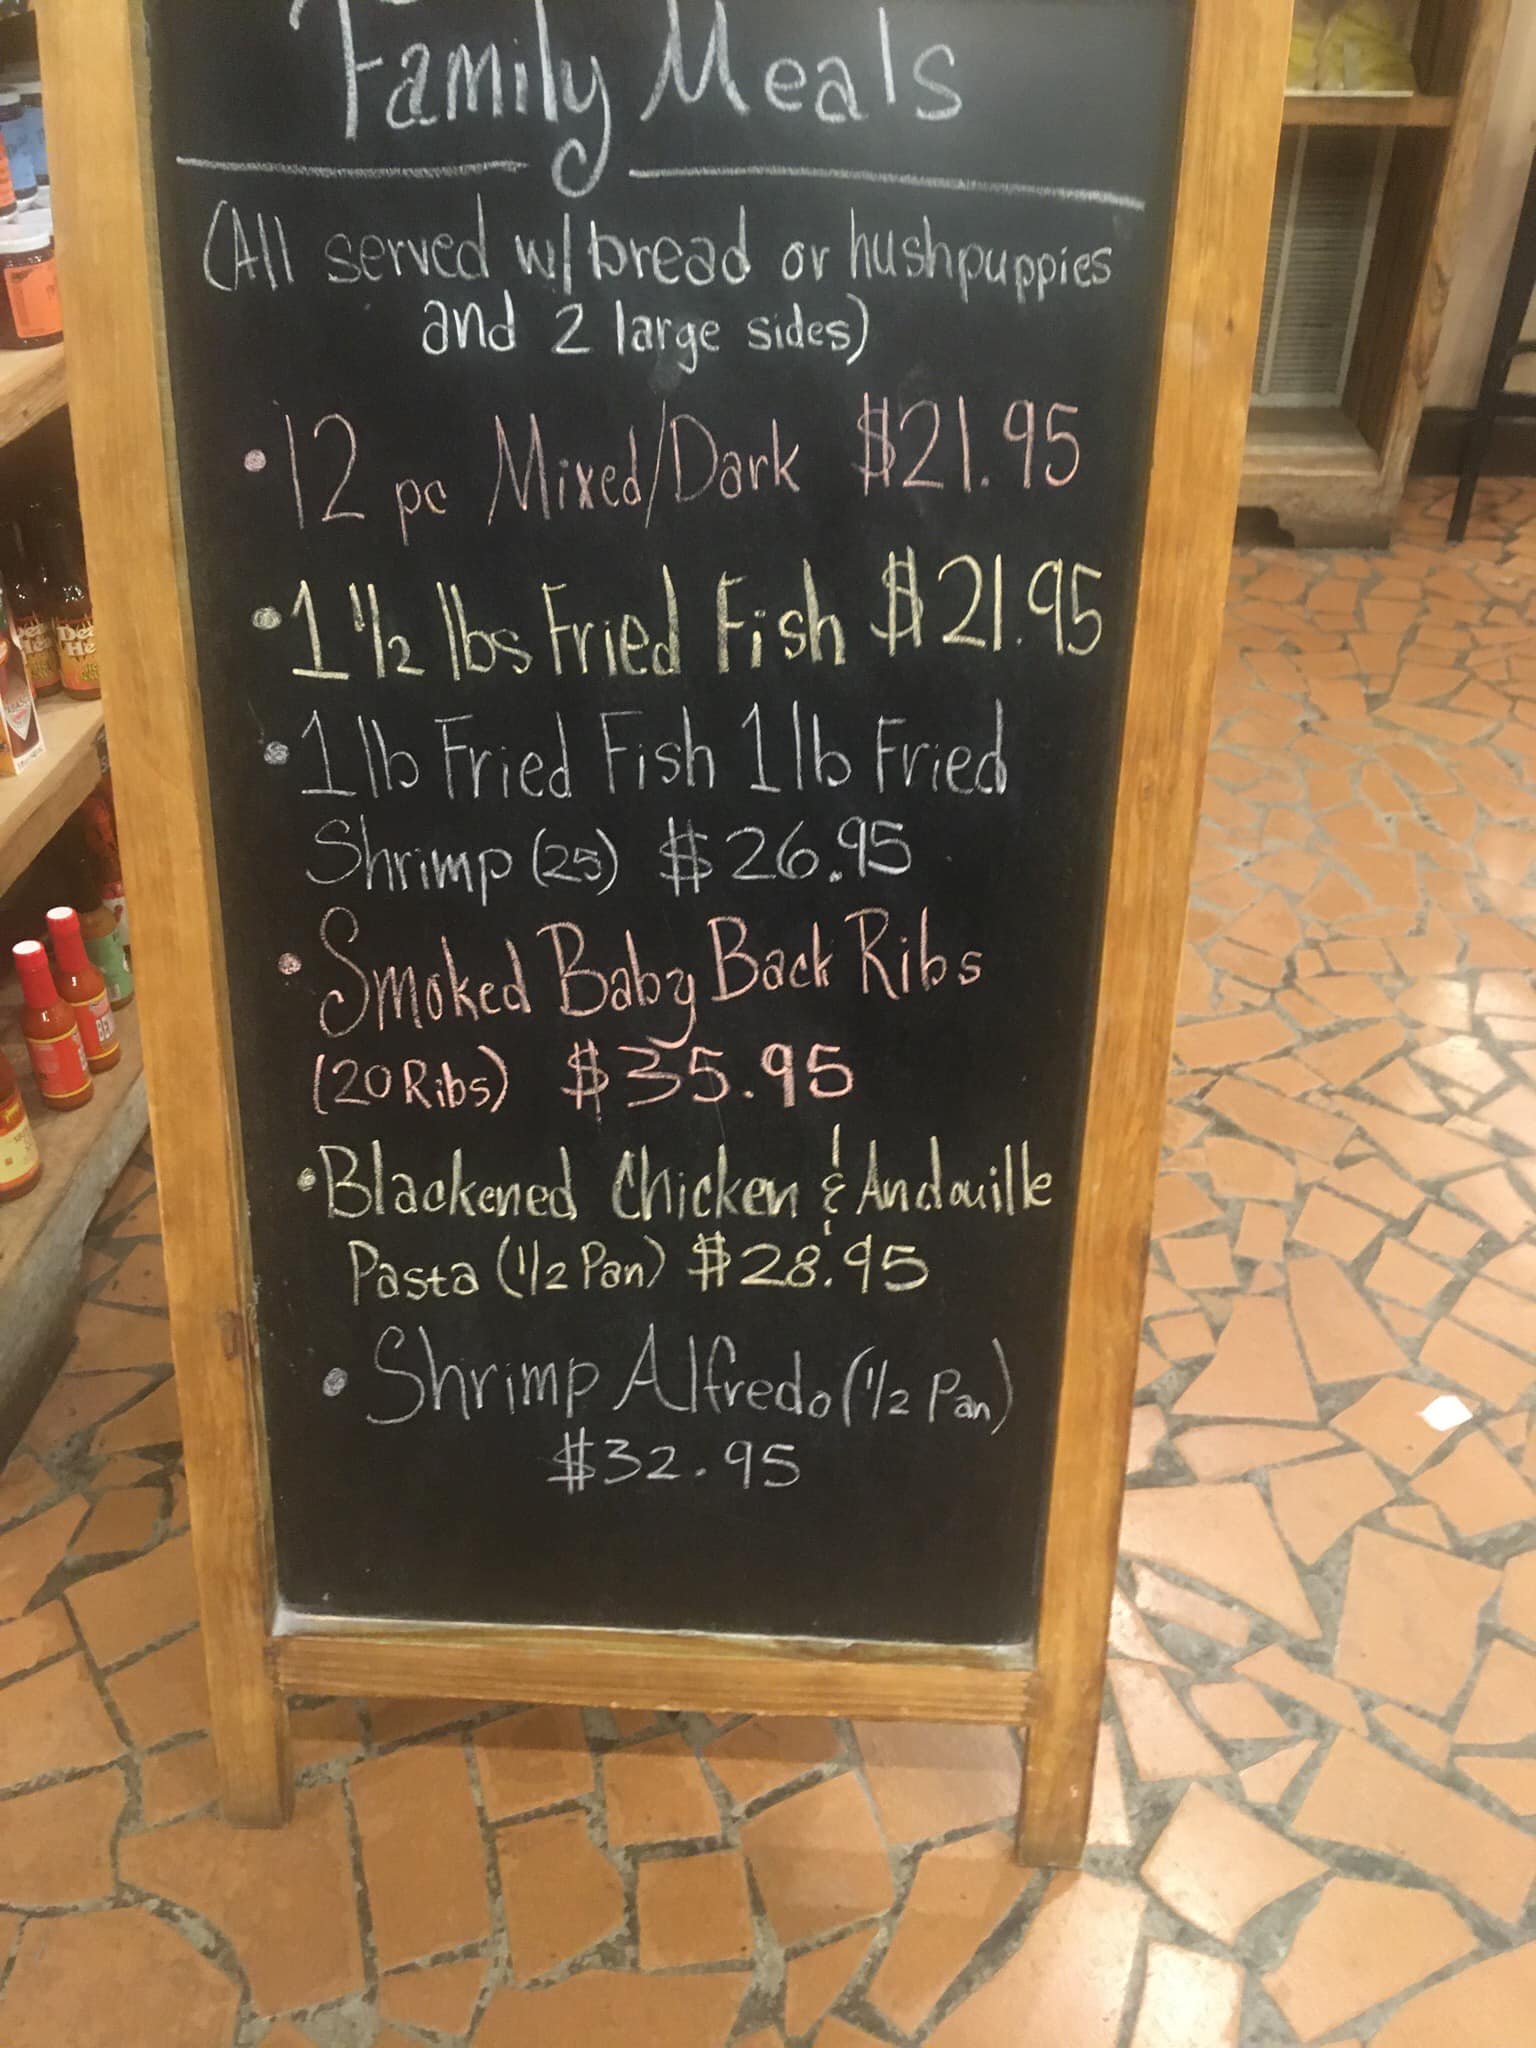 Family Meals
(All served w/ bread or hushpuppies
and 2 large sides)
• 12 pc Mixed/Dark $21.95
• 1 1/2 lbs Fried Fish $21.95
• 1 lb Fried Fish 1 lb Fried
Shrimp (25) $26.95
• Smoked Baby Back Ribs
(20 Ribs) $35.95
• Blackened Chicken & Andouille
Pasta (1/2 Pan) $28.95
• Shrimp Alfredo (1/2 Pan)
$32.95